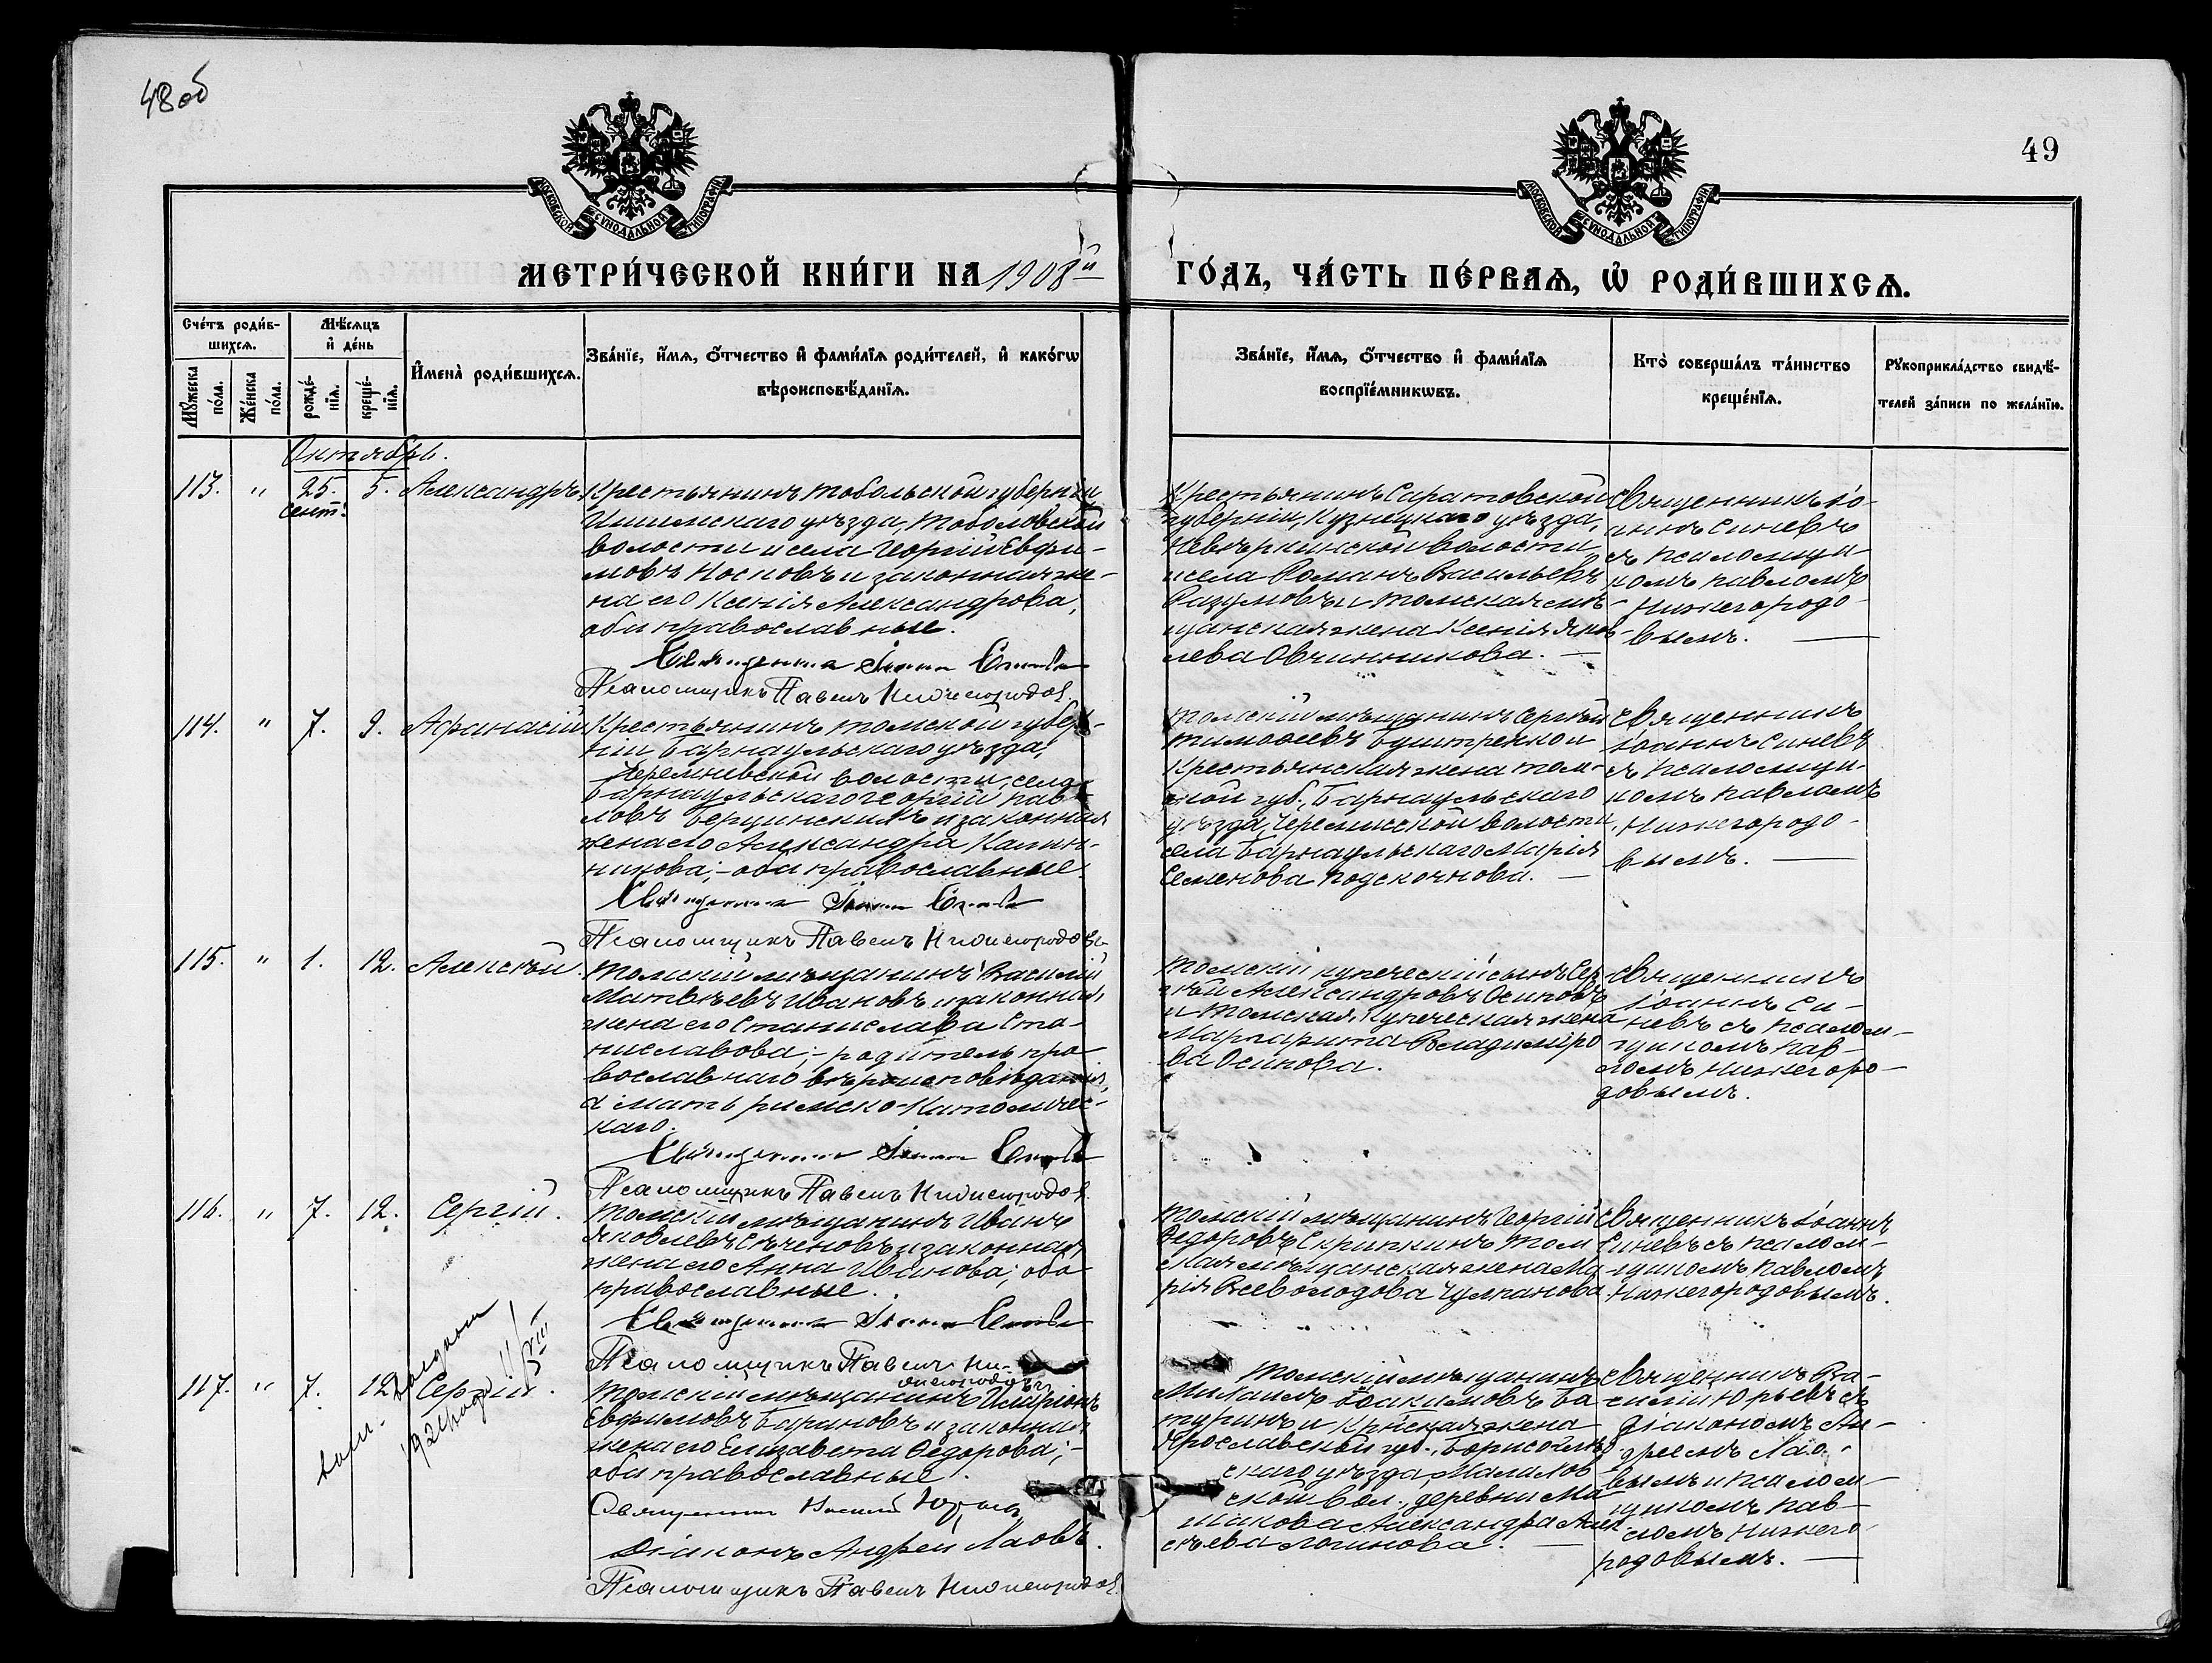 48об
49
МОСКОВСКОЙ СѴНОДАЛЬНОЙ ТИПОГРАФІИ
МОСКОВСКОЙ СѴНОДАЛЬНОЙ ТИПОГРАФІИ
МЕТРИ́ЧЕСКОЙ КНИ́ГИ НА 1908й ГО́ДЪ, ЧА́СТЬ ПЕ́РВАѦ, Ѡ҆ РОДИ́ВШИХСѦ.
Сче́тъ роди́в-
шихсѧ.
Мꙋ́жеска по́ла.
Же́нска по́ла.
Мѣ́сѧцъ
и҆ де́нь
рожде́-
нїѧ.
креще́-
нїѧ.
И҆мена̀ роди́вшихсѧ.
Зва́нїе, и҆́мѧ, ѻ҆́тчество и҆ фами́лїѧ роди́телей, и҆ како́гѡ
вѣроисповѣ́данїѧ.
Зва́нїе, и҆́мѧ, ѻ҆́тчество и҆ фами́лїѧ
воспрїе́мникѡвъ.
Кто̀ соверша́лъ та́инство
креще́нїѧ.
Рꙋкоприкла́дство свидѣ́-
телей за́писи по жела́нїю.
Октябрь.
113. " 25. сент. 5. Александръ.
Крестьянинъ Тобольской губерніи
Ишимскаго уѣзда, Тоболовской
волости и села Георгій Евфи-
мовъ Носковъ и законная же-
на его Ксенія Александрова,
оба православные.
Священникъ Іоаннъ Синевъ
Псаломщикъ Павелъ Нижегородовъ
Крестьянинъ Саратовской
губерніи, Кузнецкаго уѣзда,
Невѣркинской волости
и села Романъ Васильевъ
Разумовъ и Томская мѣ-
щанская жена Ксенія Яков-
лева Овчинникова.
Священникъ Іо-
аннъ Синевъ
съ псаломщи-
комъ Павломъ
Нижегородо-
вымъ.
114. " 7. 9. Афанасій.
Крестьянинъ Томской губер-
ніи Барнаульскаго уѣзда,
волости, села
Барнаульскаго Георгій Пав-
ловъ и законная
жена его Александра Калин-
никова; - оба православные.
Священникъ Іоаннъ Синевъ
Псаломщикъ Павелъ Нижегородовъ
Томскій мѣщанинъ Сергѣй
Тимофеевъ и
Крестьянская жена Том-
ской губ., Барнаульскаго
уѣзда, волости,
села Барнаульскаго Марія
Семенова
Священникъ
Іоаннъ Синевъ
съ псаломщи-
комъ Павломъ
Нижегородо-
вымъ.
115. " 1. 12. Алексѣй.
Томскій мѣщанинъ Василій
Матвѣевъ Ивановъ и законная
жена его Станислава Ста-
ниславова; - родитель пра-
вославнаго вѣроисповѣданія,
а мать римско-католичес-
каго.
Священникъ Іоаннъ Синевъ
Псаломщикъ Павелъ Нижегородовъ
Томскій купеческій сынъ Сер-
гѣй Александровъ Осиповъ
и Томская купеческая жена
Маргарита Владиміро-
ва Осипова.
Священникъ
Іоаннъ Си-
невъ съ псалом-
щикомъ Пав-
ломъ Нижегоро-
довымъ.
116. " 7. 12. Сергій.
Томскій мѣщанинъ Иванъ
Яковлевъ и законная
жена его Анна Иванова; оба
православные.
Священникъ Іоаннъ Синевъ
Псаломщикъ Павелъ Ни-
жегородовъ
Томскій мѣщанинъ Георгій
Ѳедоровъ Скрипкинъ Том-
ская мѣщанская жена Ма-
рія Всеволодова Чулпанова.
Священникъ Іоаннъ
Синевъ съ псалом-
щикомъ Павломъ
Нижегородовымъ.
117. " 7. 12. Сергій.
Томскій мѣщанинъ Иларіонъ
Евфимовъ Бариновъ и законная
жена его Елизавета Ѳедорова; -
оба православные.
Священникъ Василій Юрьевъ
Діаконъ Андрей Лаовъ.
Псаломщикъ Павелъ Нижегородовъ
Томскій мѣщанинъ
Михаилъ Іоакимовъ Ба-
туринъ и Кр-нская жена
Ярославской губ., Борисоглѣб-
скаго уѣзда,
ской вол., деревни
Александра Алек-
сѣева Логинова.
Священникъ Ва-
силій Юрьевъ съ
діакономъ Ан-
дреемъ Лао-
вымъ и псалом-
щикомъ Пав-
ломъ Нижего-
родовымъ.